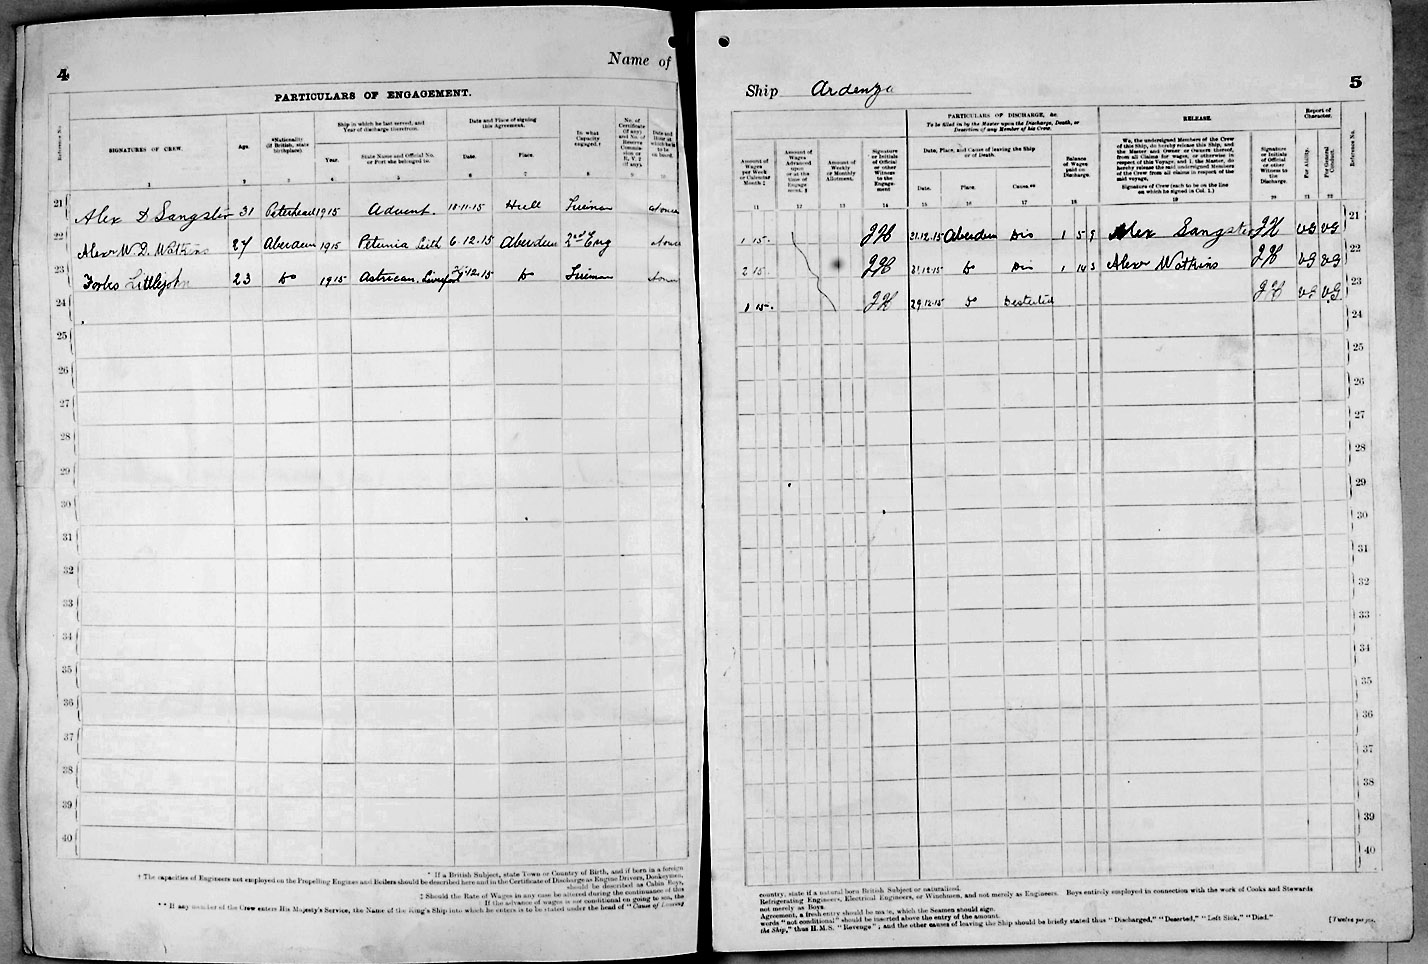 4
Name of
PARTICULARS OF ENGAGEMENT.
Reference No.
SIGNATURES OF CREW.
Age.
*Nationality (if British, state birthplace).
Ship in which he last served, and Year of discharge therefrom.
Year.
State Name and Official No. or Port she belonged to.
Date and Place of signing this Agreement.
Date.
Place.
In what Capacity engaged.†
No. of Certificate (if any) and No. of Reserve Commission or R.V.2 (if any).
Date and Hour at which he is to be on board.
1 2 3 4 5 6 7 8 9 10
21 Alex D Sangster 31 Peterhead 1915 Advent. 18-11-15 Hull Fireman at once
22 Alexr W. D. Watkins 27 Aberdeen 1915 Petunia Leith 6.12.15 Aberdeen 2nd Eng at once
23 Forbes Littlejohn 23 Do 1915 Liverpool 12.15 Do Fireman
24
25
26
27
28
29
30
31
32
33
34
35
36
37
38
39
40
* If a British Subject, state Town or Country of Birth, and if born in a foreign
† The capacities of Engineers not employed on the Propelling Engines and Boilers should be described here and in the Certificate of Discharge as Engine Drivers, Donkeymen,
should be described as Cabin Boys,
‡ Should the Rate of Wages in any case be altered during the continuance of this
If the advance of wages is not conditional on going to sea, the
** If any member of the Crew enters His Majesty's Service, the Name of the King's Ship into which he enters is to be stated under the head of "Cause of Leaving
Ship Ardenza 5
Amount of Wages per Week or Calendar Month ‡
Amount of Wages Advanced upon or at the time of Engagement. §
Amount of Weekly or Monthly Allotment.
Signature or Initials of Official or other Witness to the Engagement
PARTICULARS OF DISCHARGE, &c.
To be filled in by the Master upon the Discharge, Death, or Desertion of any Member of his Crew.
Date, Place, and Cause of leaving the Ship or of Death.
Date.
Place.
Cause.**
Balance of Wages paid on Discharge.
RELEASE.
We, the undersigned Members of the Crew of this Ship, do hereby release this Ship, and the Master and Owner or Owners thereof, from all Claims for wages, or otherwise in respect of this Voyage; and I, the Master, do hereby release the said undersigned Members of the Crew from all claims in respect of the said voyage.
Signature of Crew (each to be on the line on which he signed in Col. 1.)
Signature or Initials of Official or other Witness to the Discharge.
Report of Character.
For Ability.
For General Conduct.
Reference No.
11 12 13 14 15 16 17 18 19 20 21 22
1 15. JH 31.12.15 Aberdeen Dis 1 5 9 Alex Sangster JH VG VG 21
2 15 JH 31.12.15 Do Dis 1 14 3 Alexr Watkins JH VG VG 22
1 15. JH 29.12.15 Do Deserted JH VG VG 23
24
25
26
27
28
29
30
31
32
33
34
35
36
37
38
39
40
country, state if a natural born British Subject or naturalized.
Refrigerating Engineers, Electrical Engineers, or Winchmen, and not merely as Engineers. Boys entirely employed in connection with the work of Cooks and Stewards
not merely as Boys.
Agreement, a fresh entry should be made, which the Seamen should sign.
words "not conditional" should be inserted above the entry of the amount.
the Ship," thus H.M.S. "Revenge"; and the other causes of leaving the Ship should be briefly stated thus "Discharged," "Deserted," "Left Sick," "Died."